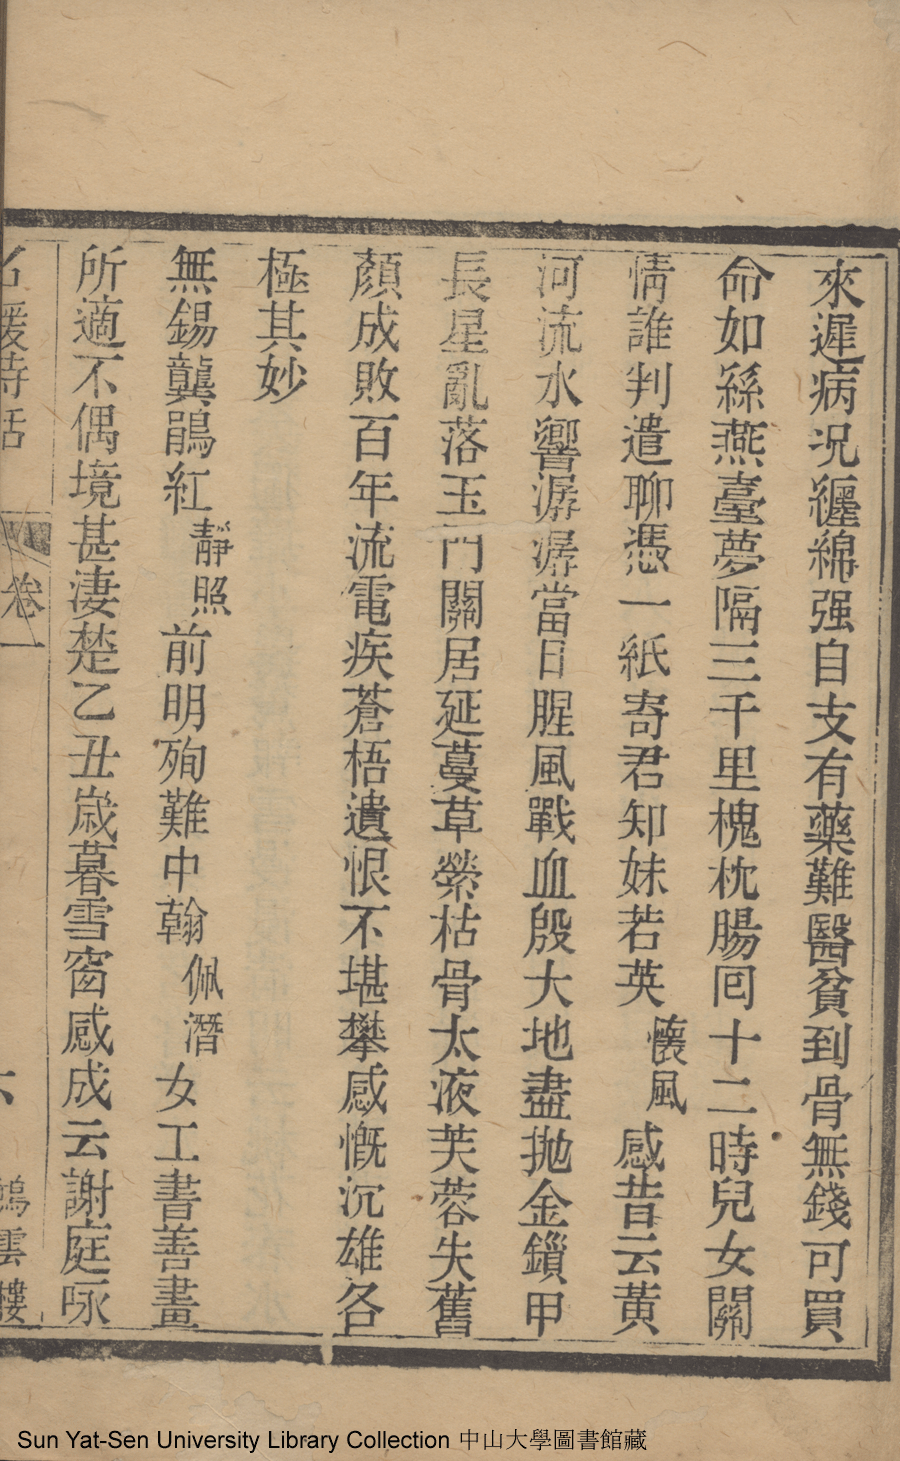 來遲病况纏綿强自支有藥難醫貧到骨無錢可買
命如絲燕臺夢隔三千里槐枕腸囘十二時兒女關
情誰判遣聊憑一紙寄君知妹若英懷風感昔云黃
河流水響潺潺當日腥風戰血殷大地盡抛金鎖甲
長星亂落玉門關居延蔓草縈枯骨太液芙蓉失舊
顏成敗百年流電疾蒼梧遺恨不堪攀感慨沉雄各
極其妙
無錫龔鵑紅靜照前明殉難中翰佩潛女工書善畫
所適不偶境甚淒楚乙丑嵗暮雪窗感成云謝庭咏
名媛詩話 卷一 六 鴻雲樓
Sun Yat-Sen University Library Collection 中山大學圖書館藏